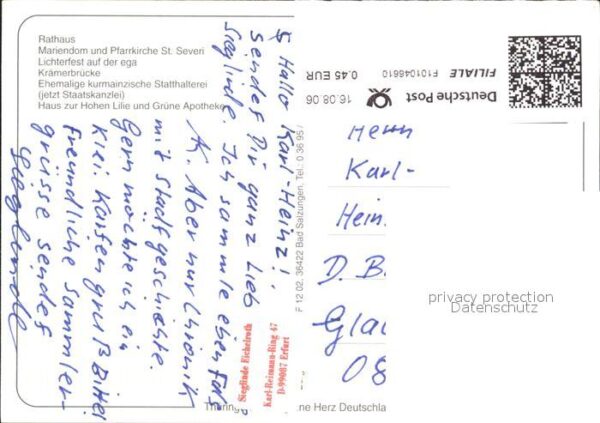 Rathaus
Mariendom und Pfarrkirche St. Severi
Lichterfest auf der ega
Krämerbrücke
Ehemalige kurmainzische Statthalterei
(jetzt Staatskanzlei)
Haus zur Hohen Lilie und Grüne Apotheke
Hallo Karl-Heinz!
Sendet Dir ganz lieb
Sieglinde. Ich sammle ebenfalls
AK. Aber nur Chronik
mit Stadtgeschichte.
Gern möchte ich ein
klei. Kartengruß Bitte!
Freundliche Sammler-
grüsse sendet
Sieglinde
Sieglinde Eichelroth
Karl-Reimann-Ring 47
D-99087 Erfurt
12.02. 36422 Bad Salzungen, Tel.: 0 36 95 /
Deutsche Post
FILIALE F101046610
16.08.06 0.45 EUR
Herrn
Karl-
Hein
D. B
Glau
08
privacy protection
Datenschutz
Thüring
ne Herz Deutschla